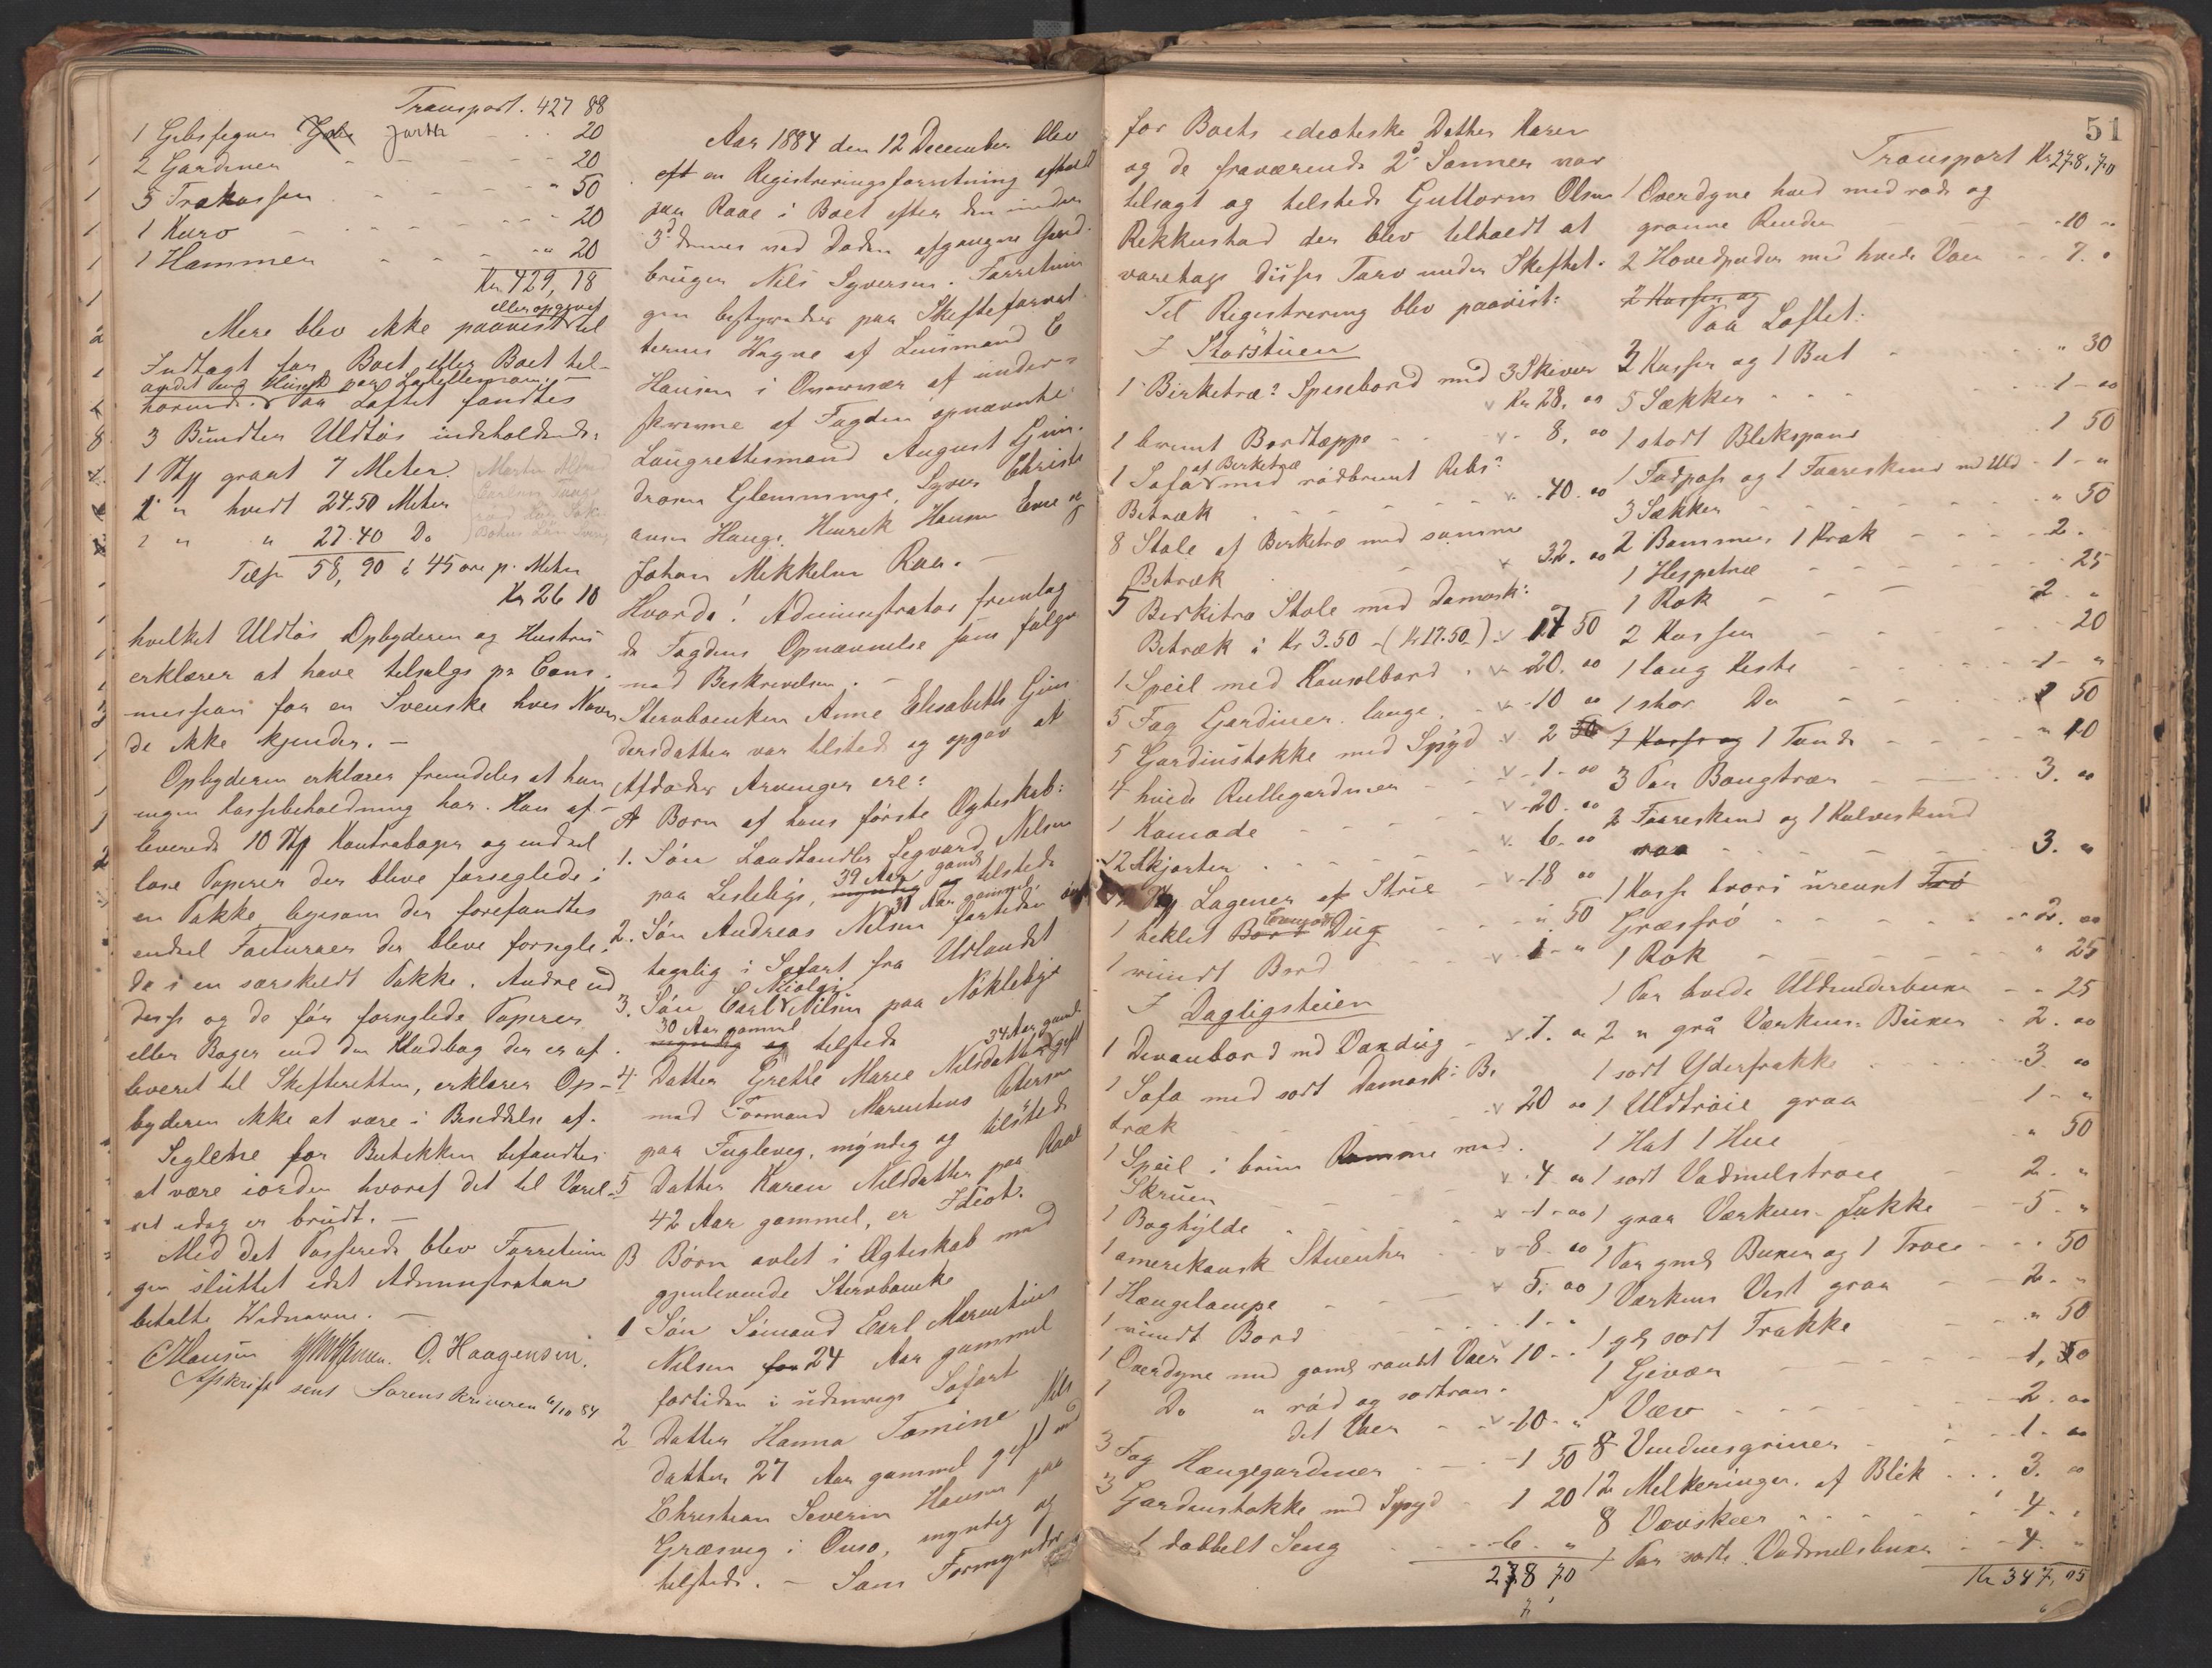 Transport. 427 88
1 Gibsfigur Jarth - - 20
2 Gardiner - - - - 20
5 Trækasser - - " 50
1 Kurv - - - - 20
1 Hammer - - - " 20
Kr. 429, 18
Mere blev ikke paavist eller opgivet til
Indtægt for Boet eller Boet til-
hørende. Paa Loftet fandtes
3 Bundter Uldtøi indeholdende:
1 Stk graat 7 Meter
1 " hvidt 24.50 Meter
1 " " 27.40 Do
Tils. 58,90 à 45 øre p. Meter
Kr 26 10
hvilket Uldtøi Opbyderen og Hustru
erklærer at have tilsalgs pr Com-
mission for en Svenske hvis Navn
de ikke kjender. -
Opbyderen erklærer fremdeles at han
ingen Kassebeholdning har. Han af-
leverede 10 Stk Kontrabøger og endel
løse Papirer der bleve forseglede i
en Pakke, ligesom der forefandtes
endel Facturaer der bleve forsegle-
de i en særskilt Pakke. Andre end
disse og de før forseglede Papirer
eller Bøger end den Kladbog der er af-
leveret til Skifteretten, erklærer Op-
byderen ikke at være i Besiddelse af.
Seglene for Butikken befandtes
at være iorden hvoraf det til Varel-
set idag er brudt. -
Med det Passerede blev Forretnin
gen sluttet idet Administrator
betalte Vidnerne. -
CHansen O. Haagensen.
Afskrift sent Sorenskriveren 6/10 84
Aar 1884 den 12 December blev
en Registreringsforretning afholdt
paa Raae i Boet efter den inden
3d. dennes ved Døden afgangne Gaard-
bruger Nils Syversen. Forretnin
gen bestyredes paa Skifteforval-
terens Vegne af Lensmand C
Hansen i Onsø af under-
skrevne af Fogden opnævnte
Laugrettesmænd August Gun-
drosen Glemminge, Syver Christi
ansen Hauge, Henrik Hansen Enge og
Johan Mikkelsen Raa. -
Hvorda! Administrator fremlag
de Fogdens Opnævnelse som følger
med Beskrivelsen. -
Stervboenken Anne Elisabeth Gun
dersdatter var tilstede og opgav at
Afdødes Arvinger ere:
A Børn af hans første Ægteskab:
1. Søn Landhandler Segvard Nilsen
paa Lisleby, 39 Aar gaml tilstede
2. Søn Andreas Nilsen 31 Aar gammel fortiden
i Sjøfart fra Udlandet
3. Søn Carl Nicolai Nilsen paa Nøkleby
30 Aar gammel tilstede
4 Datter Grethe Marie Nilsdatter 34 Aar gaml gift
med Formand Marentius Petersen
paa Fuglevig, myndig og tilstede
5 Datter Karen Nilsdatter paa Raae
42 Aar gammel, er Idiot.
B Børn avlet i Ægteskab med
gjenlevende Stervboenke
1 Søn Sømand Carl Marentius
Nilsen 24 Aar gammel
fortiden i udenrigs Søfart
2 Datter Hanna Tomine Nils
datter 27 Aar gammel gift med
Christian Severin Hansen paa
Græsvig i Onsø, myndig og
tilstede. - Som Formynder
51
for Boets idiotiske Datter Karen
og de fraværende 2de Sønner var
tilsagt og tilstede Guttorm Olsen
Rekkustad der blev tilholdt at
varetage disses Tarv under Skiftet.
Til Registrering blev paavist:
I Storstuen
1 Birketræs Spisebord med 3 Skiver
Kr 28. 00
1 brunt Bordtæppe - - 8. 00
1 Sofa af Birketræ med rødbrunt Ribs
Betræk - - - 40. 00
8 Stole af Birketræ med samme
Betræk - - 32. 00
5 Birketræ Stole med Damask:
Betræk à Kr 3.50 - (Kr 17.50) 17 50
1 Speil med Konsolbord - 20. 00
5 Fag Gardiner lange - 10 00
5 Gardinstokke med Spyd 2 50
4 hvide Rullegardiner - 1 - 00
1 Komode - - - 20. 00
12 Skjorter - - - 6. 00
Stk Lagener af Strie - 18 00
1 heklet Dug - " 50
1 rundt Bord - - 1 - "
I Dagligstuen
1 Divanbord md Voxdug - 7. "
1 Sofa med sort Damask: Be
træk - - - 20 00
1 Speil i brun Ramme med
Skruen - - 4 00
1 Boghylde - - - 1 - 00
1 amerikansk Stueuhr - - 8. 00
1 Hængelampe - - 5. 00
1 rundt Bord - - - 1. "
1 Overdyne med gamle randet Vaer 10 - -
1 Do " rød og sortran-
det Vaer - - 10. "
3 Fag Hængegardiner - - 1 50
3 Gardinstokke med Spyd - 1 20
1 dobbelt Seng - - 6. "
278 70
Transport Kr 278,70
1 Overdyne hvid med røde og
grønne Render - - 10 -
2 Hovedpuder med hvide Vaer - - 7. "
Paa Loftet:
3 Kasser og 1 But - " 30
5 Sækker - - - 1 - 00
1 stort Blikspand - 1 50
1 Fodpose og 1 Faareskind md Uld - 1 - "
3 Sækker - - - " 50
2 Bommer, 1 Krak - - 2. -
1 Hespetræ - - - 25
1 Rok - - - 2. "
2 Kasser - - - 20
1 lang Kiste - - 1 - "
1 stor Do - - 50
1 Tønde - - " 10
3 Par Bougtræer - - 3. 00
2 Faareskind og 1 Kalveskind
raa - - - 3. "
1 Kasse hvori urenset
Græsfrø - - - 2. 00
1 Rok - - - " 25
1 Par hvide Uldunderbuxer - - 25
2 " grå Værkens Buxer - 2. 00
1 sort Yderfrakke - - 3. 00
1 Uldtrøie graa - 1 - "
1 Hat 1 Hue - " 50
1 sort Vadmelstroie - 2. "
1 graa Værkens Jakke - 5. "
1 Par gml Buxer og 1 Trøie - - 50
1 Værkens Vest graa - 2. "
1 gl sort Frakke - - " 50
1 Gevær - - - 1, 50
1 Væv - - - 2. 00
8 Vinduesgriner - - 1 - 00
12 Melkeringer af Blik - - 3. 00
8 Vævskeer - - - 4. "
1 Par sorte Vadmelsbuxer - - 4. "
Kr 347, 05